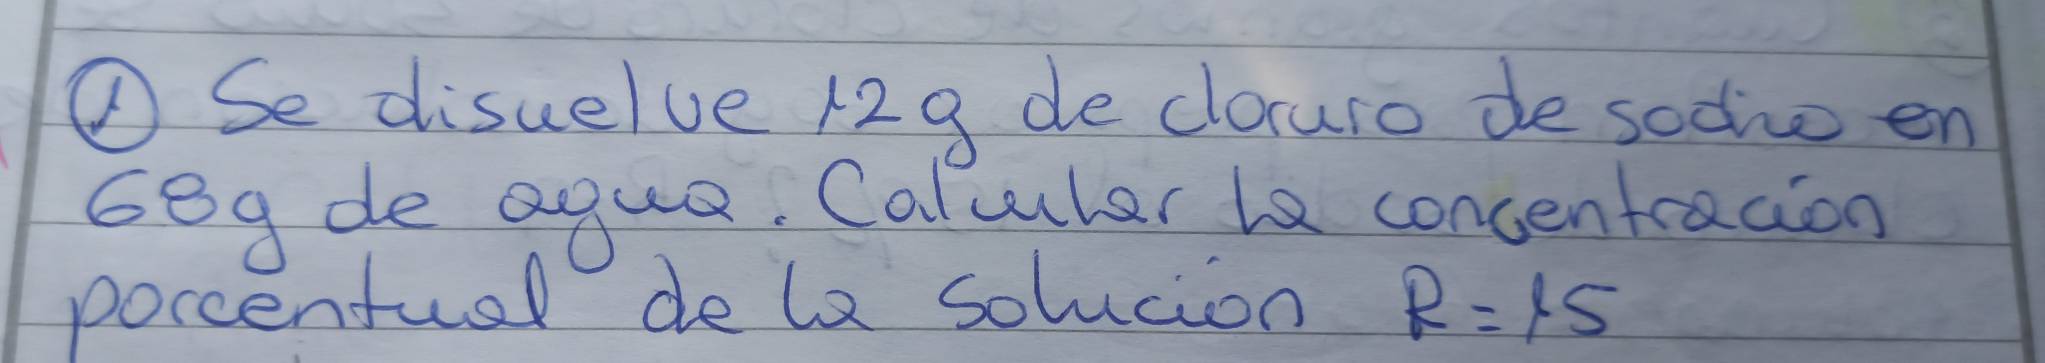 ① Se disuelve 12g de cloruro de sodio en
68g de agua. Calcular la concentración
porcentual de la solución R=15